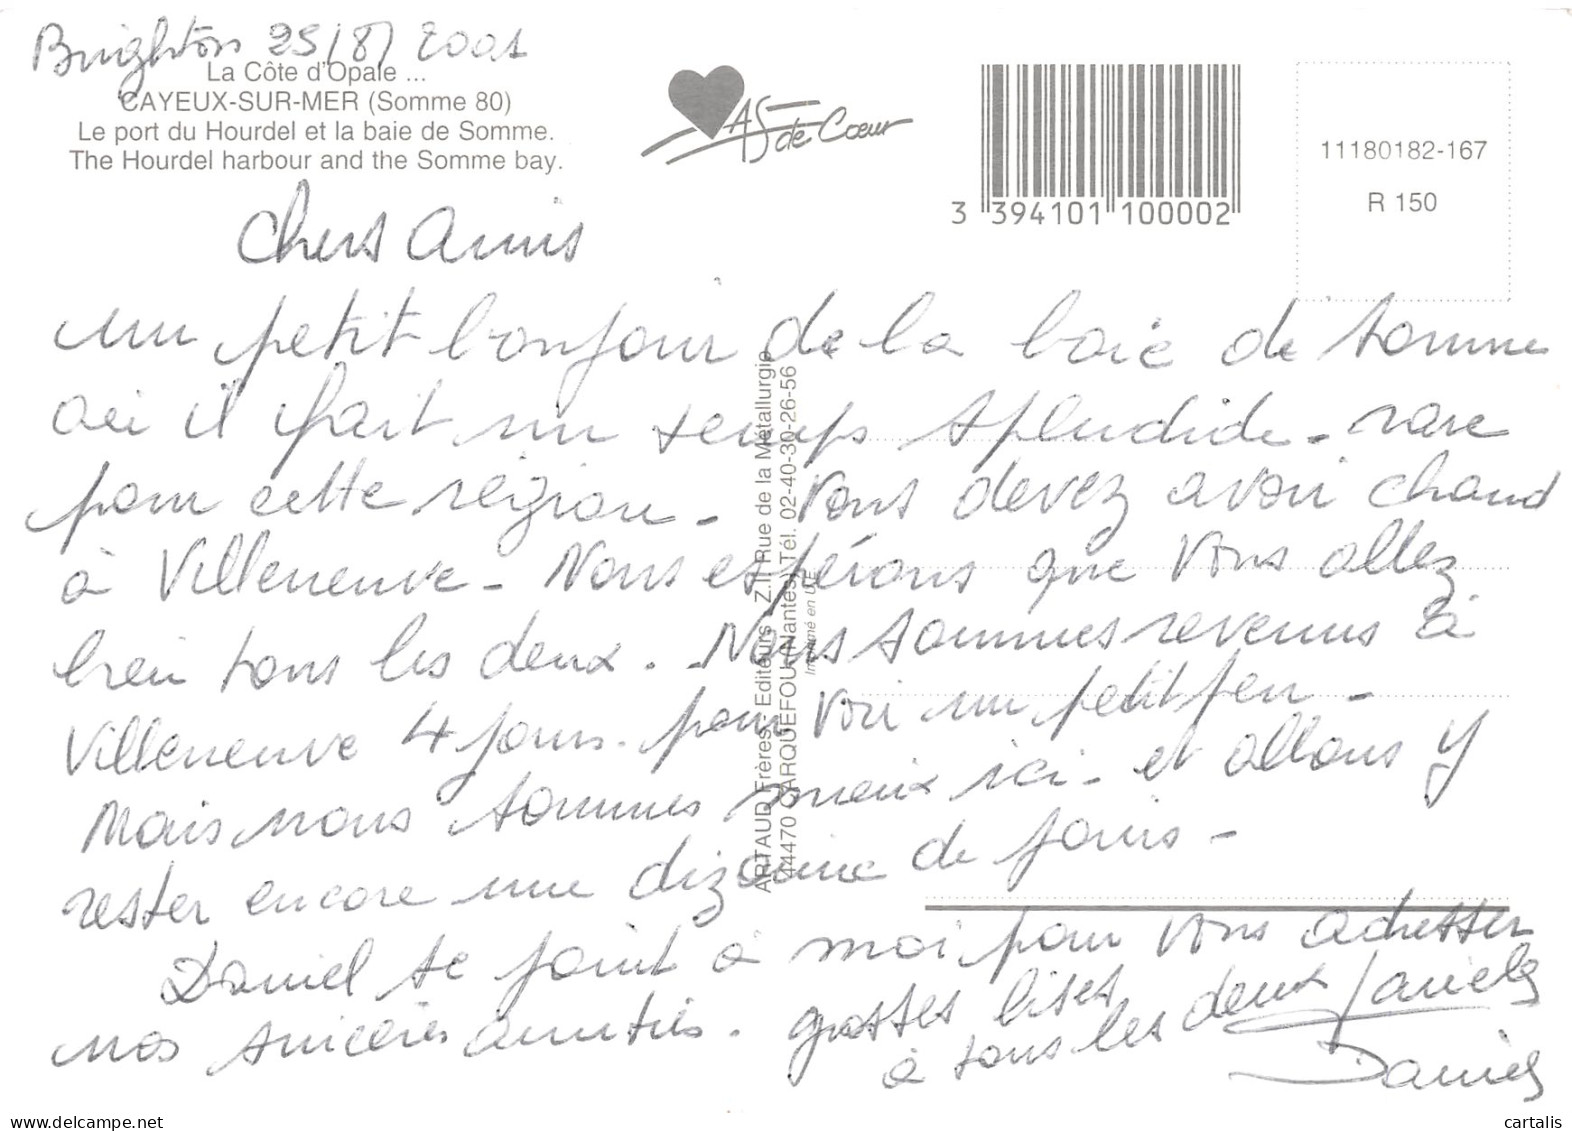 Brighton 25/8/2001
La Côte d'Opale ...
CAYEUX-SUR-MER (Somme 80)
Le port du Hourdel et la baie de Somme.
The Hourdel harbour and the Somme bay.
AS de Cœur
3 394101 100002
11180182-167
R 150
Chers Amis
un petit bonjour de la baie de Somme
où il fait un temps splendide - rare
pour cette région - Vous devez avoir chaud
à Villeneuve - Nous espérons que vous allez
bien tous les deux. Nous sommes revenus à
Villeneuve 4 jours. pour voir un petit peu -
Mais nous sommes mieux ici - et allons y
rester encore une dizaine de jours -
Daniel se joint à moi pour vous adresser
nos sincères amitiés. grosses bises
à tous les deux
Daniel
ARTAUD Frères. Editeurs - Z.I. Rue de la Métallurgie
44470 CARQUEFOU (Nantes) Tél. 02-40-30-26-56
Imprimé en UE
cartalis